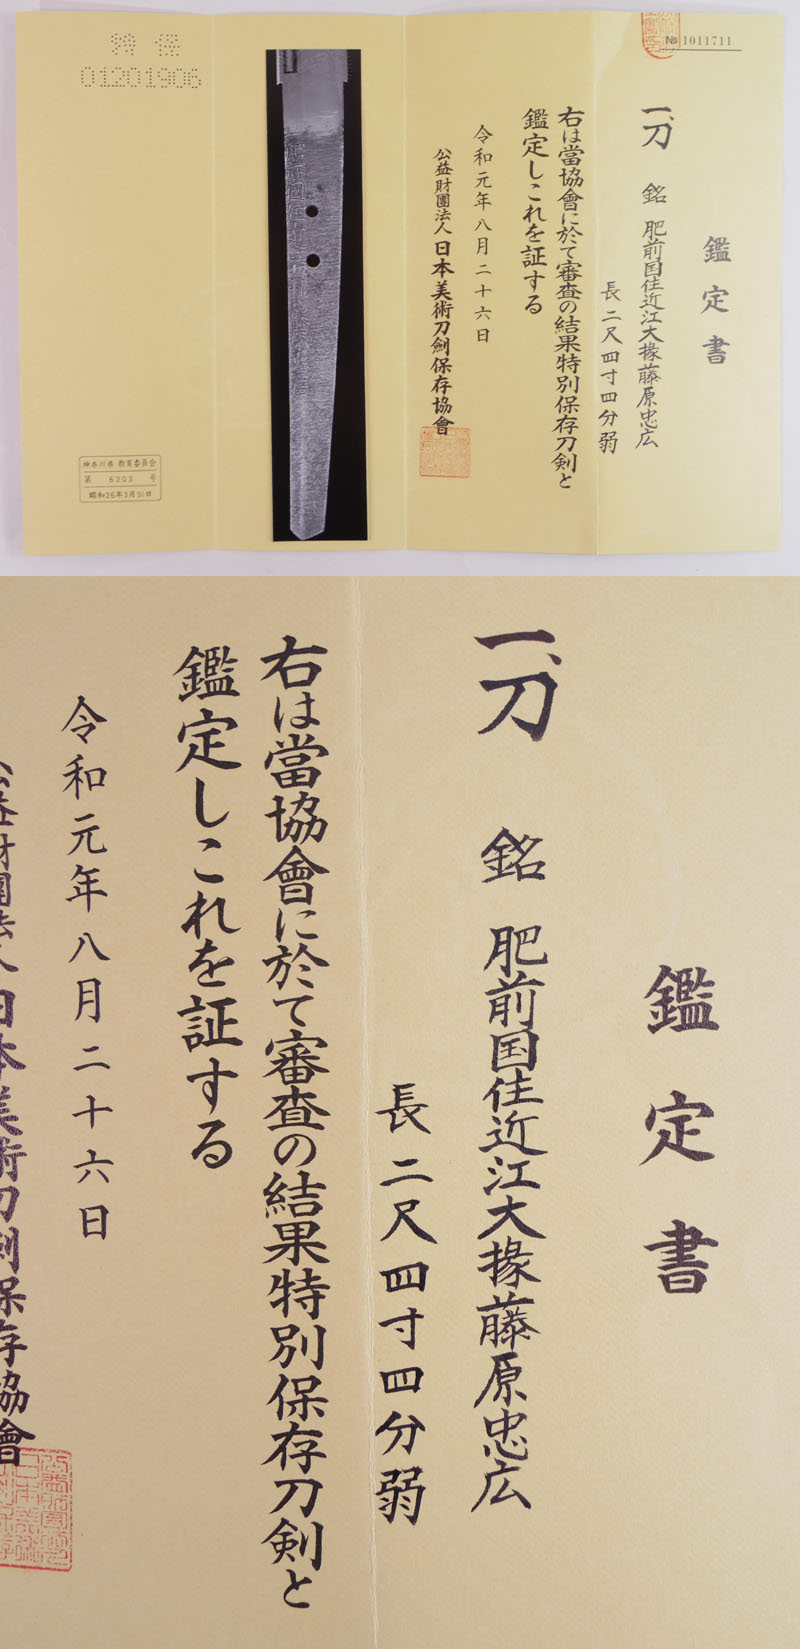 № 1011711
鑑定書
一、刀 銘 肥前国住近江大掾藤原忠広
長二尺四寸四分弱
右は當協會に於て審査の結果特別保存刀剣と
鑑定しこれを証する
令和元年八月二十六日
公益財團法人日本美術刀劍保存協會
特保
01201906
神奈川県教育委員会
第 6203 号
昭和26年3月31日
鑑定書
一、刀 銘 肥前国住近江大掾藤原忠広
長二尺四寸四分弱
右は當協會に於て審査の結果特別保存刀剣と
鑑定しこれを証する
令和元年八月二十六日
公益財團法人日本美術刀劍保存協會